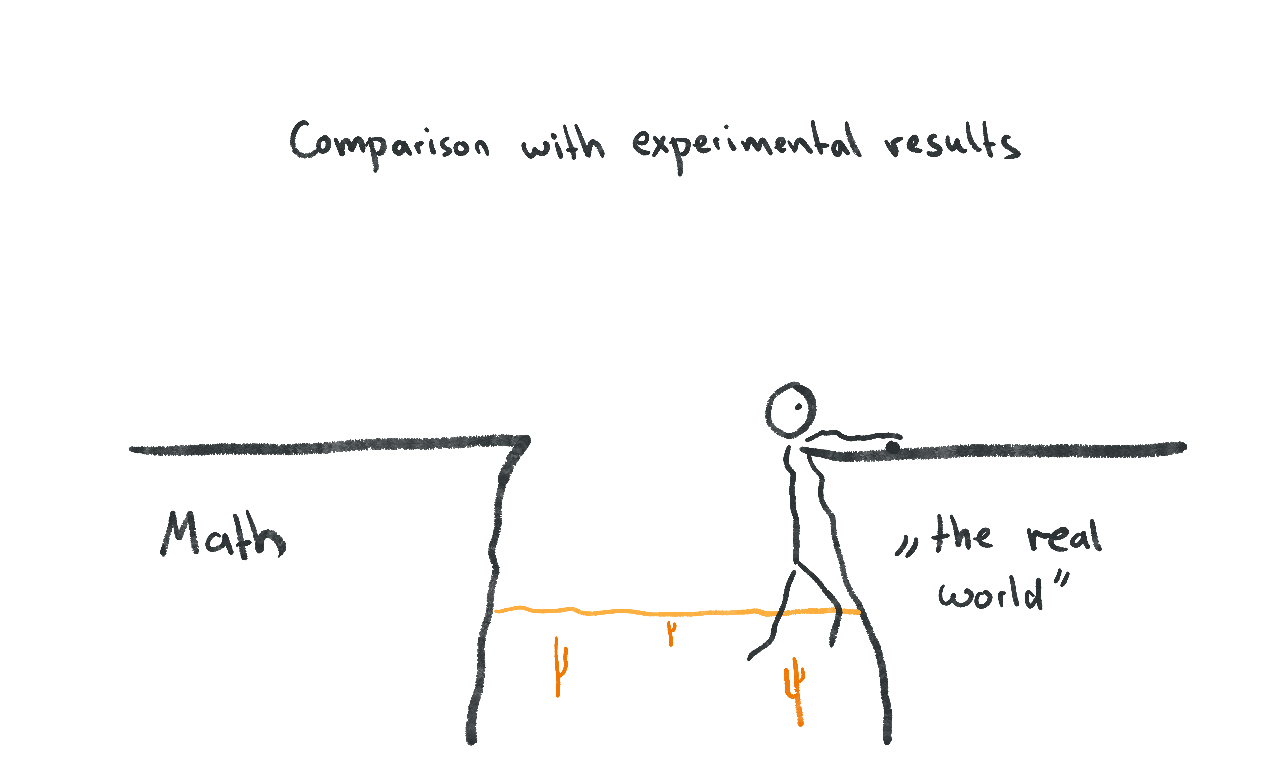 Comparison with experimental results
Math
„the real
world”